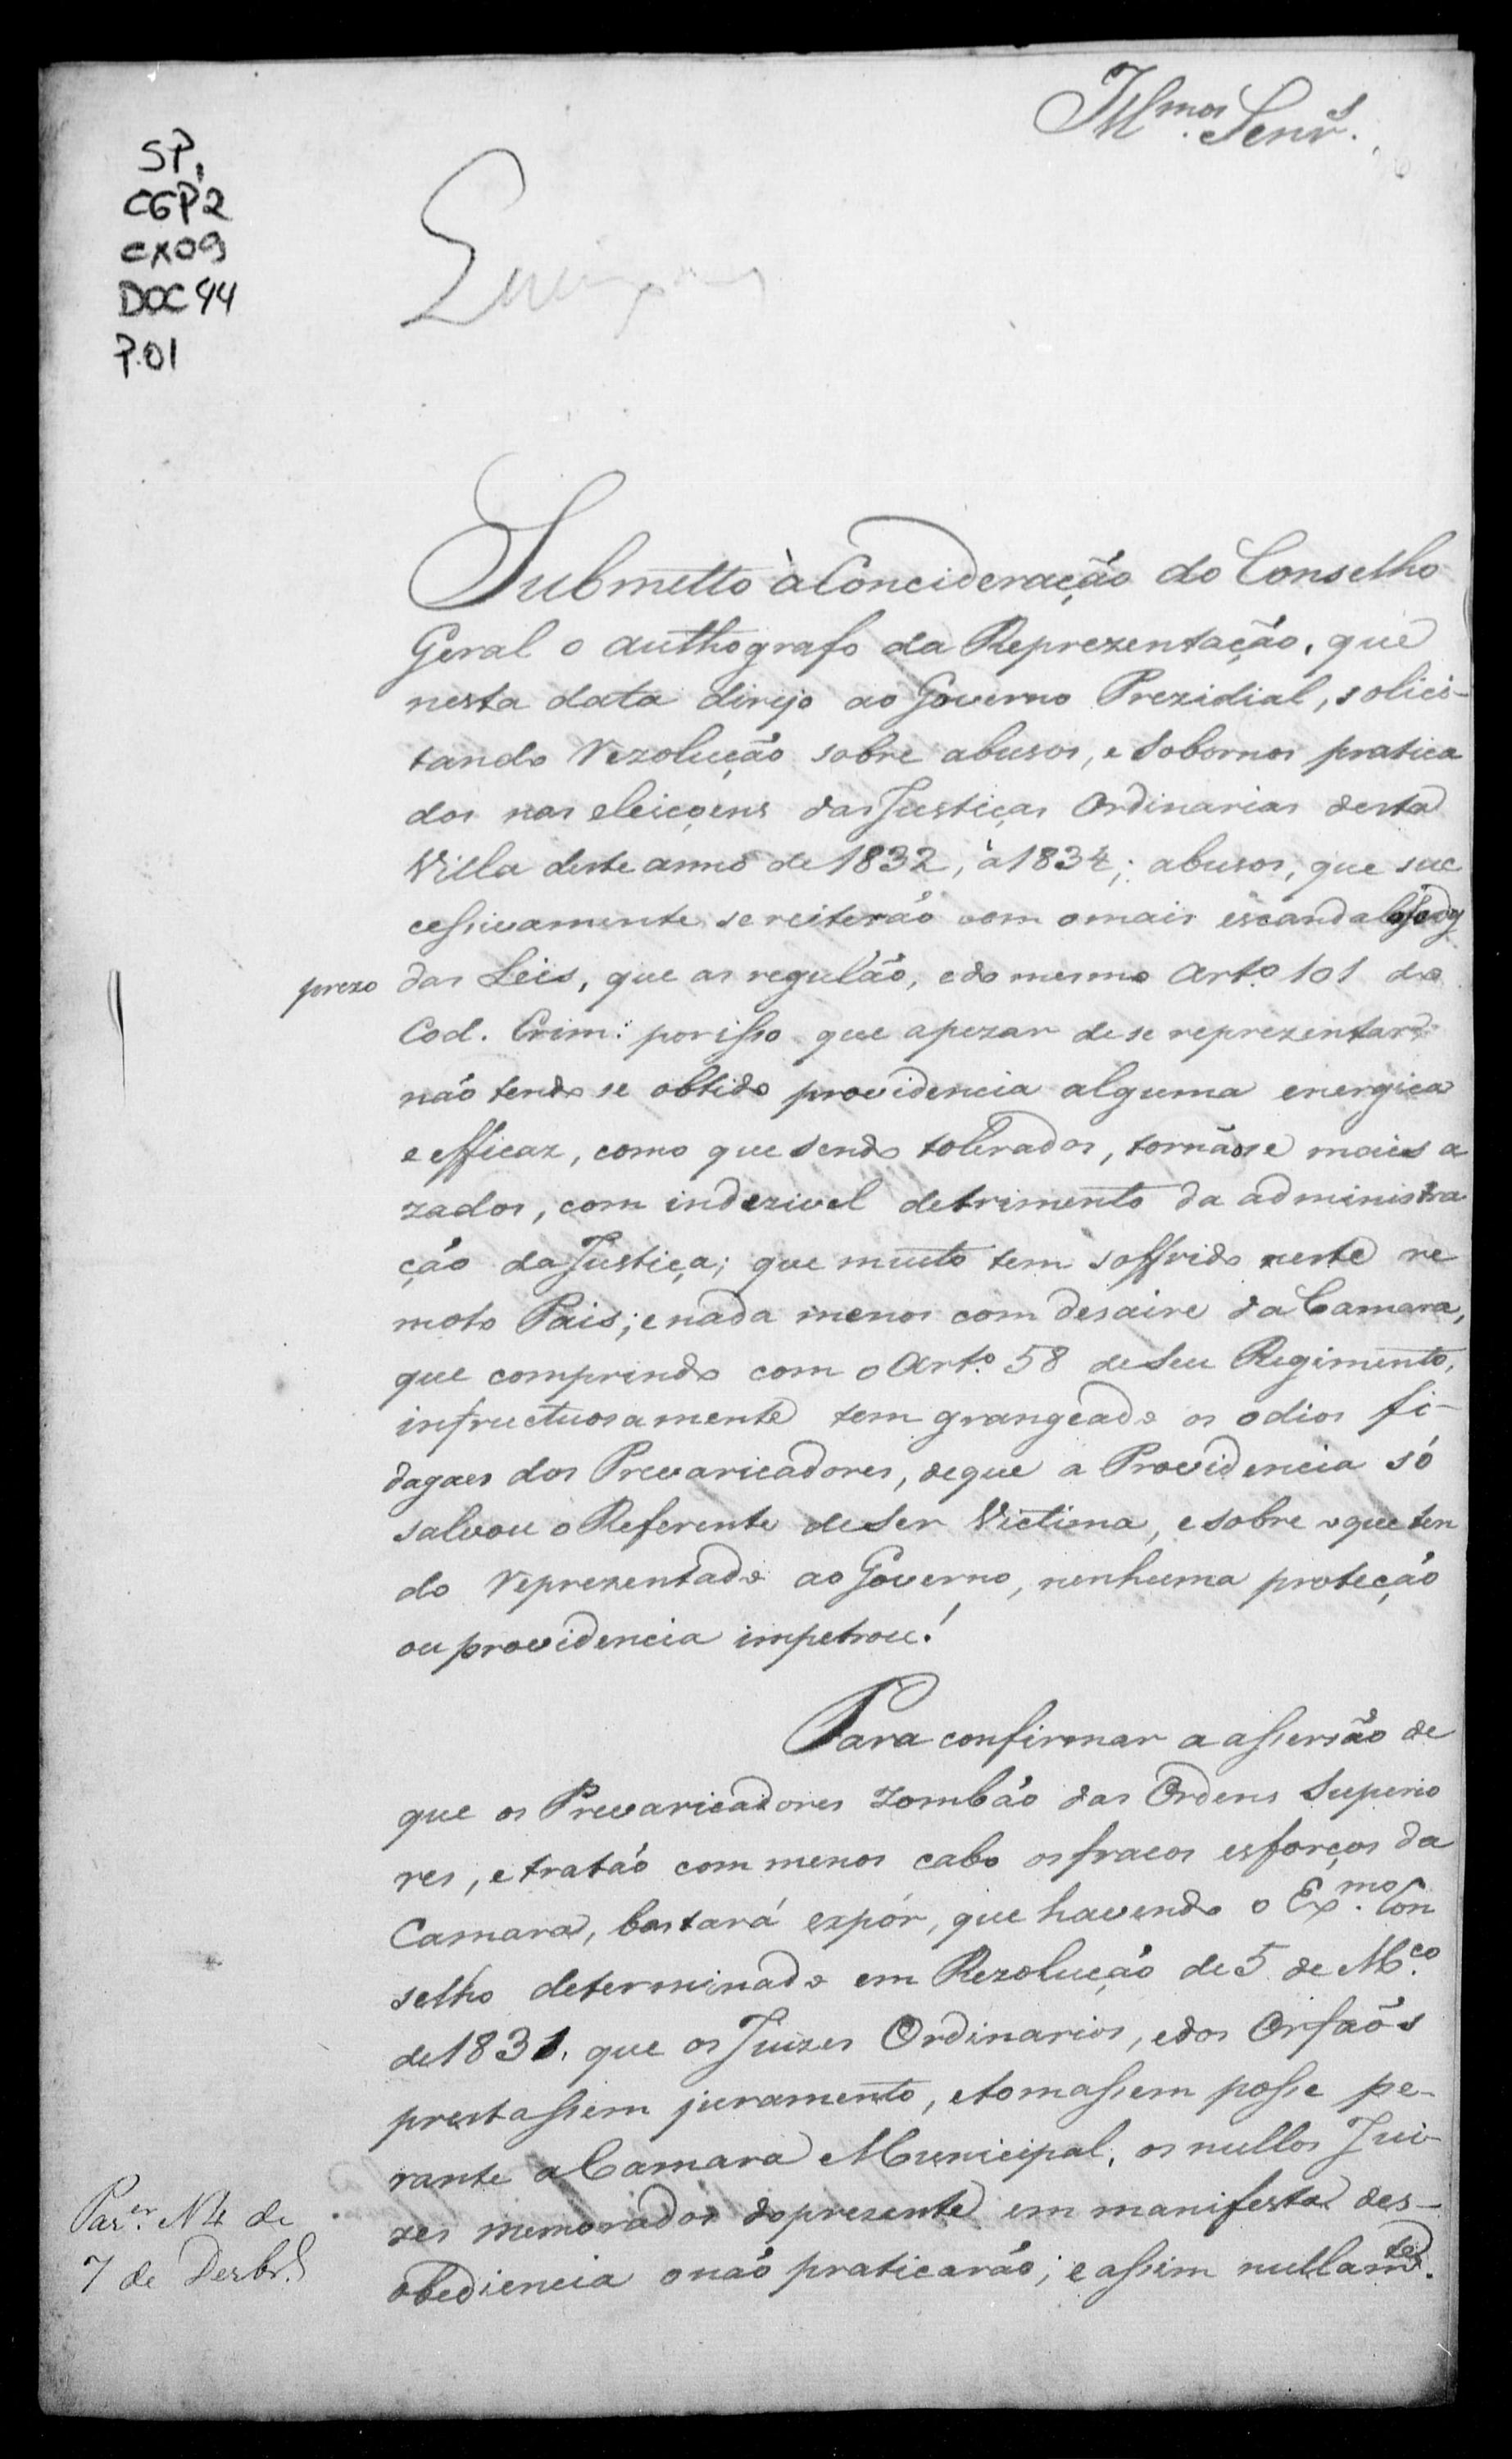 Illmos. Senrs.
SP,
CGP2
CX09
DOC 44
P.01
Submetto à Concideração do Conselho
Geral o authografo da Reprezentação, que
nesta data dirijo ao Governo Prezidial, solici-
tando Rezolução sobre abusos, e Sobornos pratica
dos nas eleiçoens das Justiças Ordinarias desta
Villa deste anno de 1832, à 1834; abusos, que suc
cessivamente se reiterão com o mais escandaloso
prezo das Leis, que as regulão, e do mesmo Arto. 101 do
Cod. Crim: por isso que apezar de se reprezentar
não tendo se obtido providencia alguma energica
e efficaz, como que sendo tolerados, tornãose mais a
zados, com indezivel detrimento da administra
ção da Justiça; que muito tem soffrido neste re
moto Pais; e nada menos com desaire da Camara,
que comprindo com o Arto. 58 de seu Regimento,
infructuosamente tem grangeado os odios fi-
dagaes dos Prevaricadores, de que a Providencia só
salvou o Referente de Ser Victima, e sobre o que ten
do reprezentado ao Governo, nenhuma proteção
ou providencia impetrou!
Para confirmar a assersão de
que os Prevaricadores zombão das Ordens Superio
res, e tratão com menos cabo os fracos esforços da
Camara, bastará expór, que havendo o Exmo. Con
selho determinado em Rezolução de 5 de Mço.
de 1831. que os Juizes Ordinarios, e dos Orfaõs
prestassem juramento, e tomassem posse pe-
rante a Camara Municipal, os nullos Jui-
zes memorados do prezente em manifesta des-
obediencia o não praticarão; e assim nullamte.
Parer. N4 de
7 de Dezbr.